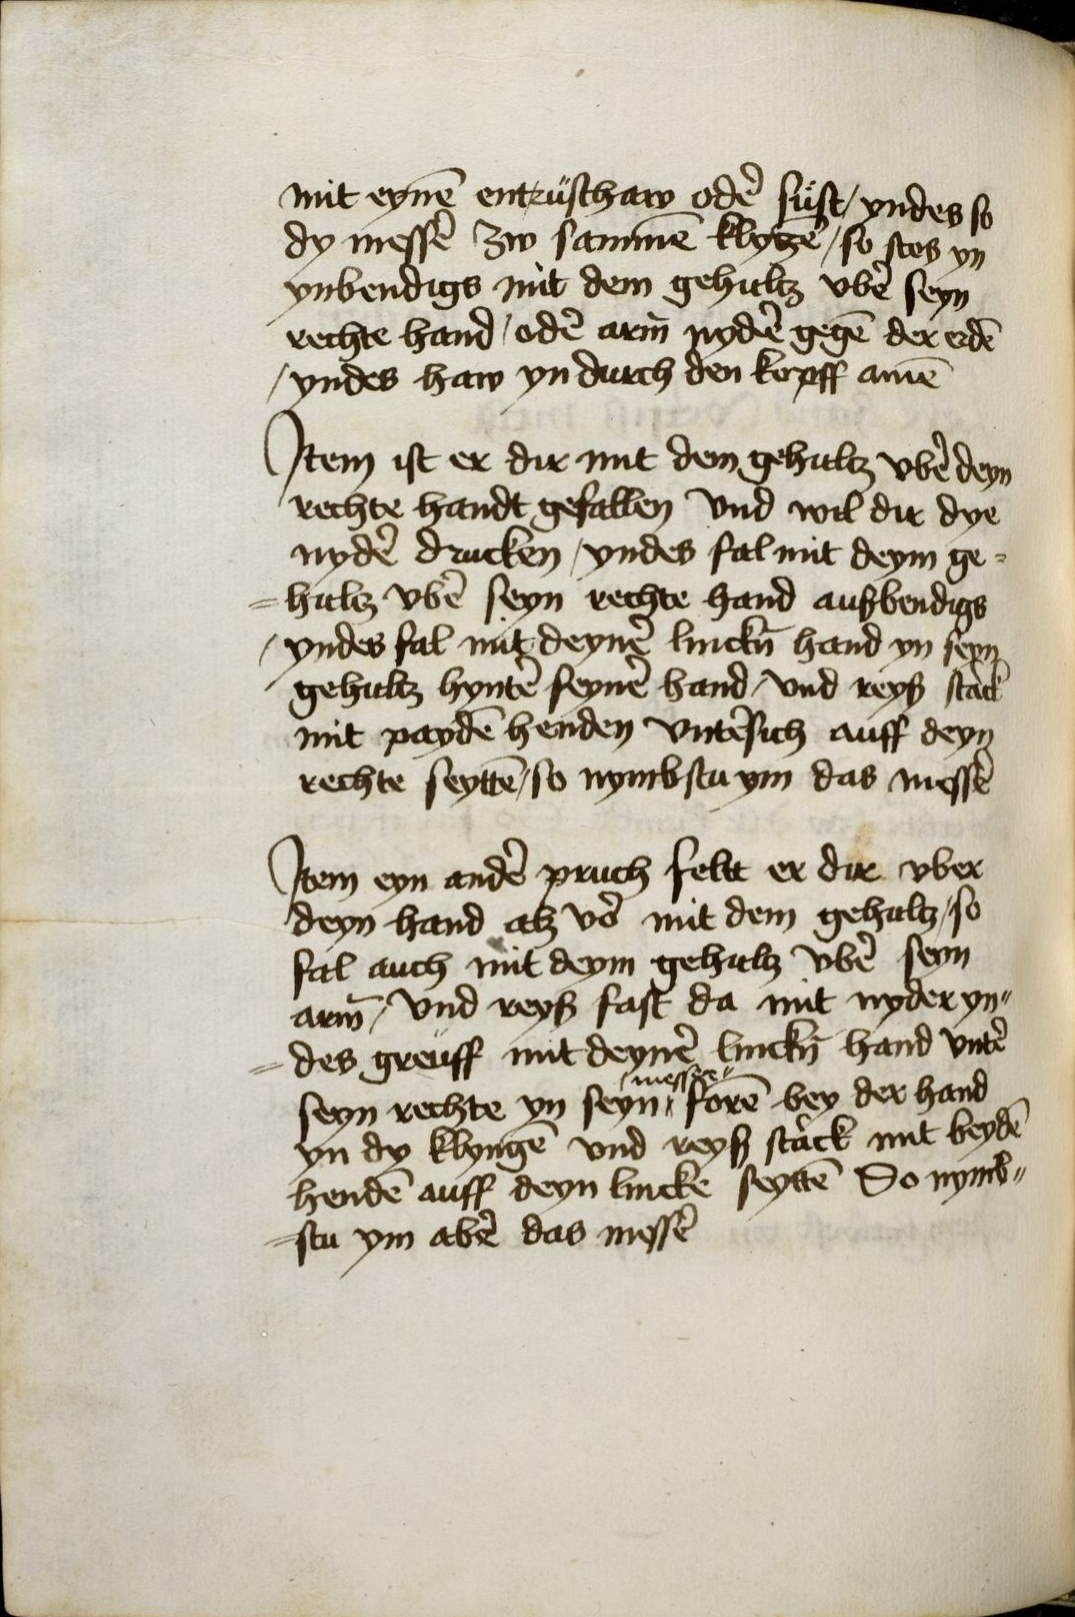 mit eynē entrüsthaw odē sust / yndes so
dy messē zw sammē klygē / so stos yn
ynbendigs mit dem gehultz vbē seyn
rechte hand / odē arm̄ nydē gegē der erdē
/ yndes haw yn durch den kopff amē
Item ist er dir mit dem gehultz vbē deyn
rechte handt gefallen Vnd wil dir dye
nydē drucken / yndes fal mit deym ge=
=hultz vbē seyn rechte hand außbendigs
/ yndes fal mit deynē linckn̄ hand yn seyn
gehultz hyntē seynē hand / vnd reyß stack
mit paydē henden vntēsich auff deyn
rechte seyttē / so nymbstu ym das messē
Item eyn andē pruch felt er dir vber
deyn hand alz vō mit dem gehultz / so
fal auch mit deym gehultz vbē seyn
arm̄ / Vnd reyß fast da mit nyder yn=
=des greüff mit deynē linckn̄ hand vntē
seyn rechte yn seyn messze forē bey der hand
yn dy klyngē vnd reyß stack mit beydē
hendē auff deyn lincke seyttē So nymb=
=stu ym abē das messē